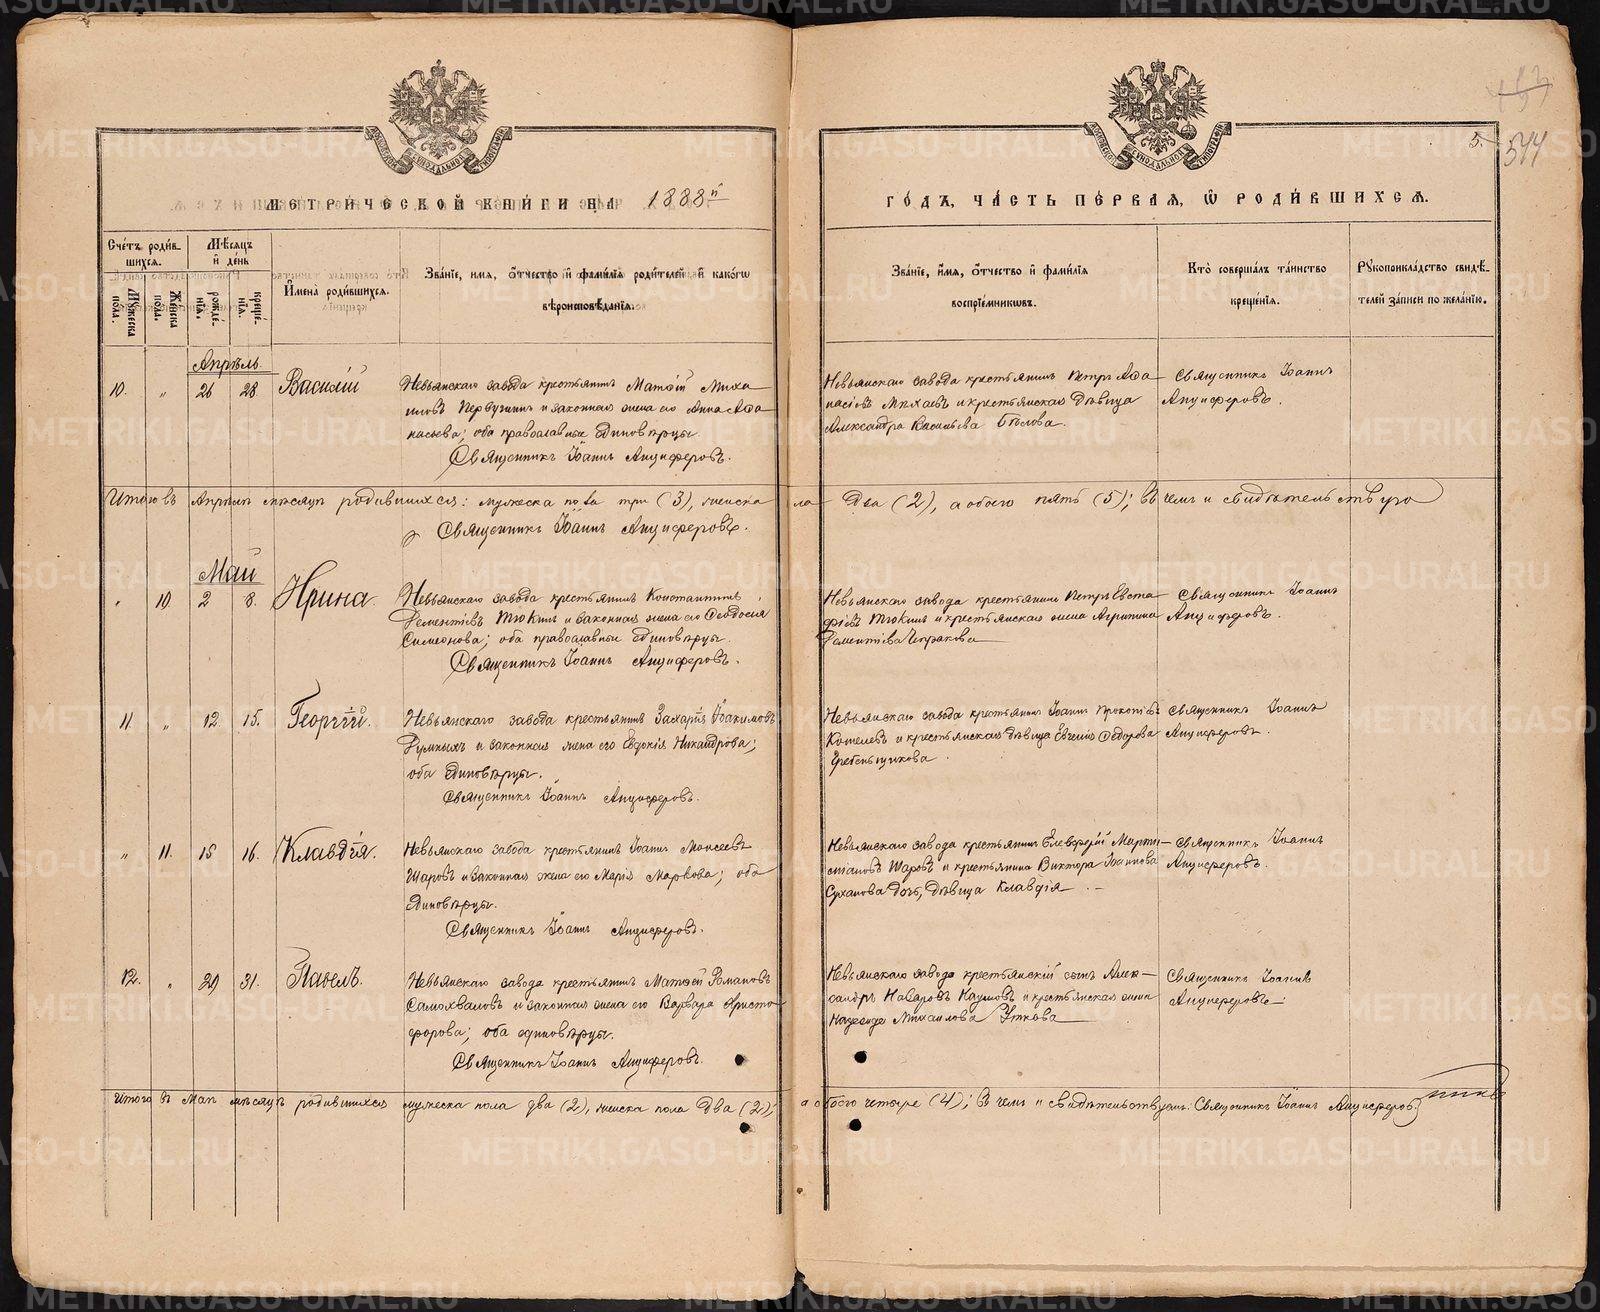 МЕТРИЧЕСКОЙ КНИГИ НА 1888й
ГОДЪ, ЧАСТЬ ПЕРВАЯ, Ѿ РОДИВШИХСЯ.
5.
544
Счетъ родившихся.
Мѣсяцъ и день
Мужеска пола.
Женска пола.
рожденія.
крещенія.
Имена родившихся.
Званіе, имя, отчество и фамилія родителей и какогѡ вѣроисповѣданія.
Званіе, имя, отчество и фамилія воспріемникѡвъ.
Кто совершалъ таинство крещенія.
Рукоприкладство свидѣтелей записи по желанію.
Апрѣль
10. " 26 28 Василій
Невьянскаго завода крестьянинъ Матѳій Миха
иловъ Первушинъ и законная жена его Анна Аѳа
насьева; оба православные единовѣрцы.
Священникъ Іоаннъ Анциферовъ.
Невьянскаго завода крестьянинъ Петръ Аѳа
насіевъ Михаевъ и крестьянская дѣвица
Александра Васильева Бѣлова.
Священникъ Іоаннъ
Анциферовъ.
Итого въ Апрѣлѣ мѣсяцѣ родившихся: мужеска пола три (3), женска
ла два (2), а обоего пять (5); въ чемъ и свидѣтельствую
Священникъ Іоаннъ Анциферовъ.
Май
" 10. 2 8. Ирина.
Невьянскаго завода крестьянинъ Константинъ
Дементіевъ Тюкинъ и законная жена его Ѳеодосія
Симеонова; оба православные единовѣрцы.
Священникъ Іоаннъ Анциферовъ.
Невьянскаго завода крестьянинъ Петръ Евста
фіевъ Тюкинъ и крестьянская жена Агрипина
Дементіева
Священникъ Іоаннъ
Анциферовъ.
11. " 12. 15. Георгій.
Невьянскаго завода крестьянинъ Захарія Іоакимовъ
Румныхъ и законная жена его Евдокія Никандрова;
оба единовѣрцы.
Священникъ Іоаннъ Анциферовъ.
Невьянскаго завода крестьянинъ Іоаннъ Прокопіевъ
Кошелевъ и крестьянская дѣвица Евгенія Ѳедорова
Гребеньщикова.
Священникъ Іоаннъ
Анциферовъ.
" 11. 15 16. Клавдія.
Невьянскаго завода крестьянинъ Іоаннъ Моисеевъ
Шаровъ и законная жена его Марія Маркова; оба
единовѣрцы.
Священникъ Іоаннъ Анциферовъ.
Невьянскаго завода крестьянинъ Елевферій Марти
ніановъ Шаровъ и крестьянина Виктора Іоаннова
Суханова дочь, дѣвица Клавдія.
Священникъ Іоаннъ
Анциферовъ.
12. " 29 31. Павелъ.
Невьянскаго завода крестьянинъ Матѳей Романовъ
Самохваловъ и законная жена его Варвара Христо
форова; оба единовѣрцы.
Священникъ Іоаннъ Анциферовъ.
Невьянскаго завода крестьянскій сынъ Алек
сандръ Назаровъ Наумовъ и крестьянская жена
Надежда Михаилова Уткова
Священникъ Іоаннъ
Анциферовъ
Итого въ Маѣ мѣсяцѣ родившихся мужеска пола два (2), женска пола два (2);
а обоего четыре (4); въ чемъ и свидѣтельствуемъ. Священникъ Іоаннъ Анциферовъ.
METRIKI.GASO-URAL.RU